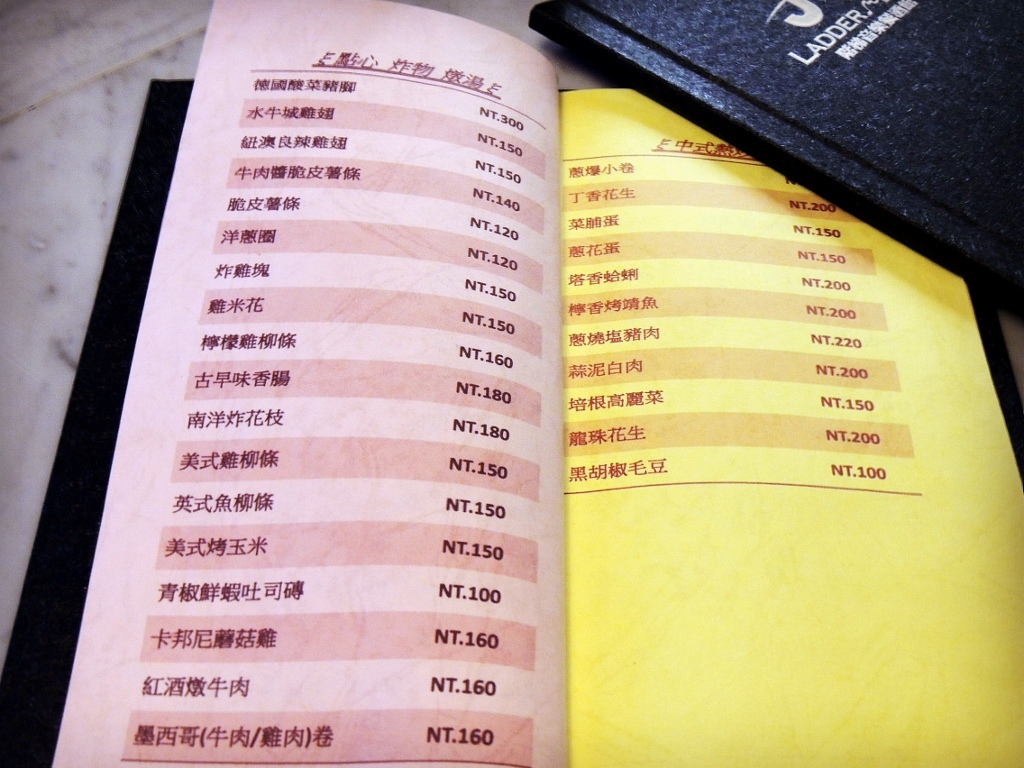 點心 炸物 燉湯
德國酸菜豬腳 NT.300
水牛城雞翅 NT.150
紐澳良辣雞翅 NT.150
牛肉醬脆皮薯條 NT.140
脆皮薯條 NT.120
洋蔥圈 NT.120
炸雞塊 NT.150
雞米花 NT.150
檸檬雞柳條 NT.160
古早味香腸 NT.180
南洋炸花枝 NT.180
美式雞柳條 NT.150
英式魚柳條 NT.150
美式烤玉米 NT.150
青椒鮮蝦吐司磚 NT.100
卡邦尼蘑菇雞 NT.160
紅酒燉牛肉 NT.160
墨西哥(牛肉/雞肉)卷 NT.160
中式熱
蔥爆小卷
丁香花生 NT.200
菜脯蛋 NT.150
蔥花蛋 NT.150
塔香蛤蜊 NT.200
檸香烤鯖魚 NT.200
蔥燒塩豬肉 NT.220
蒜泥白肉 NT.200
培根高麗菜 NT.150
龍珠花生 NT.200
黑胡椒毛豆 NT.100
LADDER